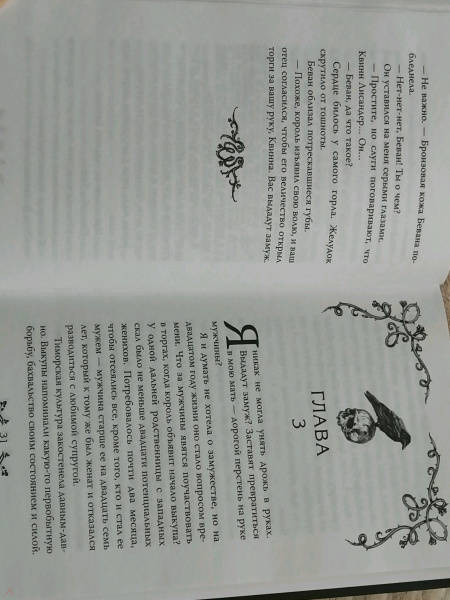 — Не важно. — Бронзовая кожа Бевана по-
бледнела.
— Нет-нет-нет, Беван! Ты о чем?
Он уставился на меня серыми глазами.
— Простите, но слуги поговаривают, что
Квинн Лисандер... Он...
— Беван, да что такое?
Сердце билось у самого горла. Желудок
скрутило от тошноты.
Беван облизал потрескавшиеся губы.
— Похоже, король изъявил свою волю, и ваш
отец согласился, чтобы его величество открыл
торги за вашу руку, Квинна. Вас выдадут замуж.
ГЛАВА
3
Я никак не могла унять дрожь в руках.
Выдадут замуж? Заставят превратиться
в мою мать — дорогой перстень на руке
мужчины?
Я и думать не хотела о замужестве, но на
двадцатом году жизни оно стало вопросом вре-
мени. Что за мужчины явятся поучаствовать
в торгах, когда король объявит начало выкупа?
У одной дальней родственницы с западных
скал было не меньше двадцати потенциальных
женихов. Потребовалось почти два месяца,
чтобы отсеялись все, кроме того, кто и стал ее
мужем — мужчина старше ее на двадцать семь
лет, который к тому же был женат и отказался
разводиться с любимой супругой.
Тиморская культура закостенела давным-дав-
но. Выкупы напоминали какую-то первобытную
борьбу, бахвальство своим состоянием и силой.
31